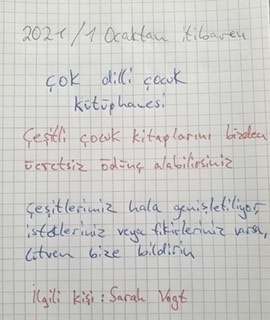 2021/1 Ocaktan itibaren
çok dilli çocuk
kütüphanesi
Çeşitli çocuk kitaplarını bizden
ücretsiz ödünç alabilirsiniz
Çeşitlerimiz hala genişletiliyor,
istekleriniz veya fikirleriniz varsa,
lütven bize bildirin
İlgili kişi : Sarah Vogt